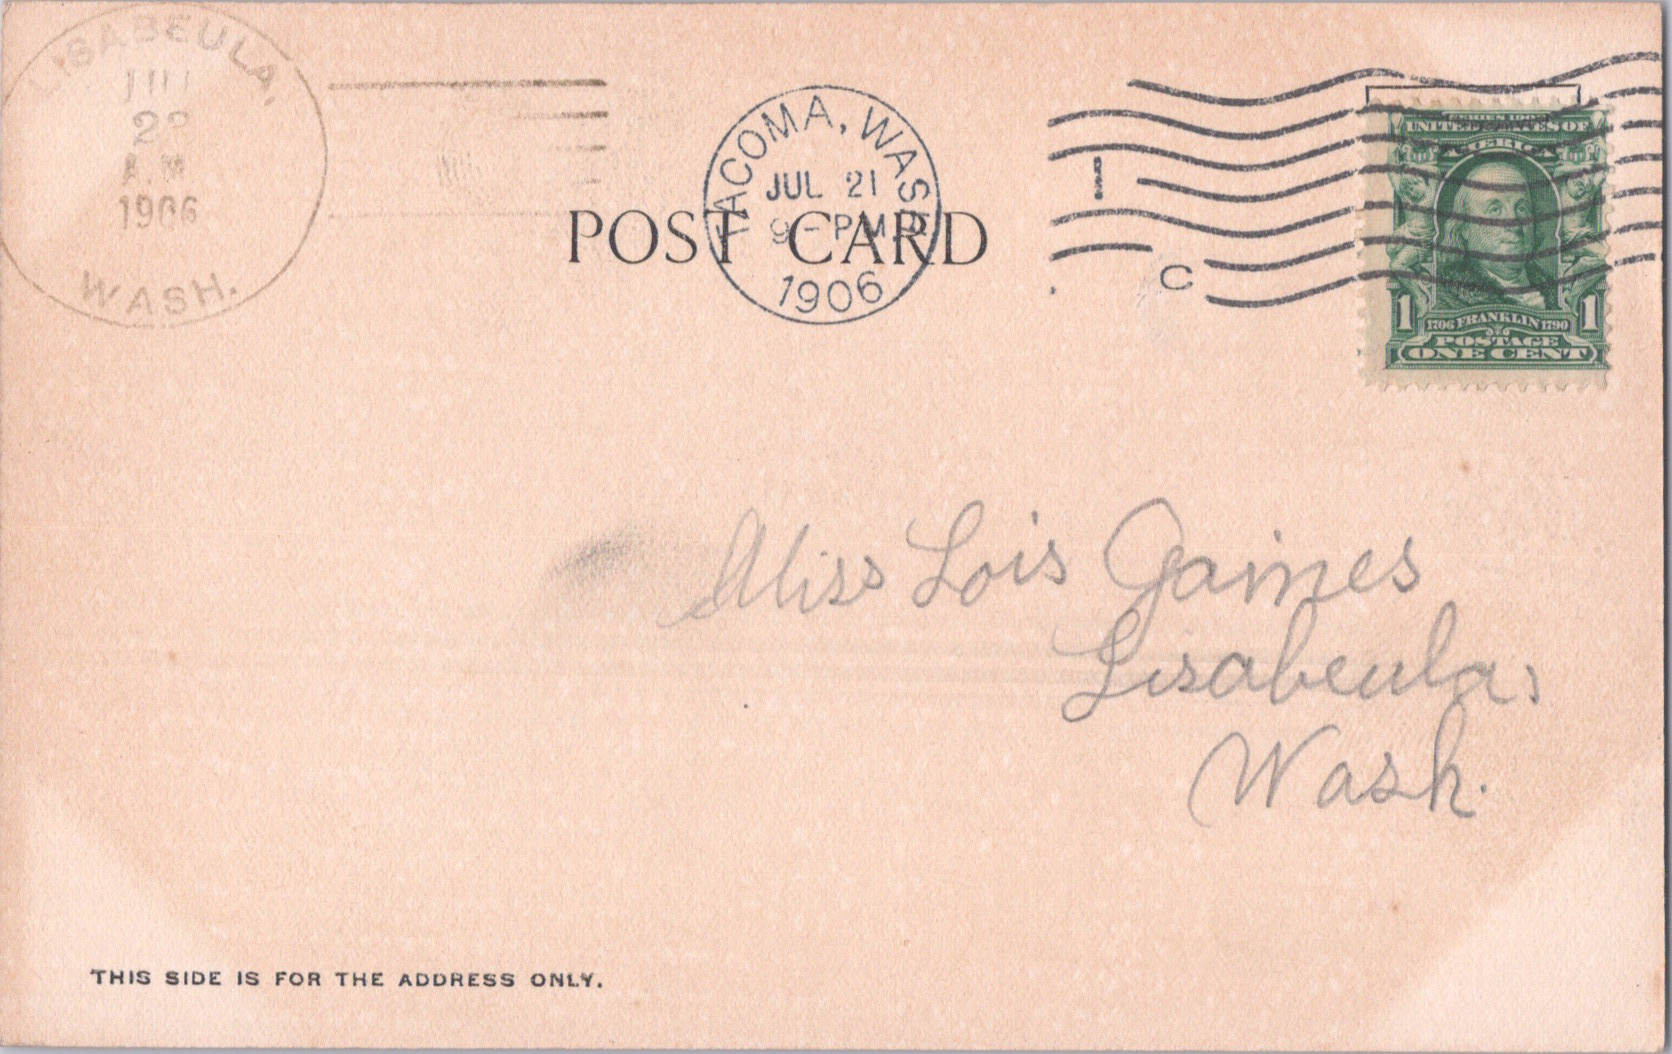 LISABEULA,
1906
WASH.
TACOMA, WASH.
JUL 21
9 - PM
1906
POST CARD
1
C
SERIES 1902
UNITED STATES OF
AMERICA
1 1
1706 FRANKLIN 1790
POSTAGE
ONE CENT
Miss Lois Gaines
Lisabeula,
Wash.
THIS SIDE IS FOR THE ADDRESS ONLY.